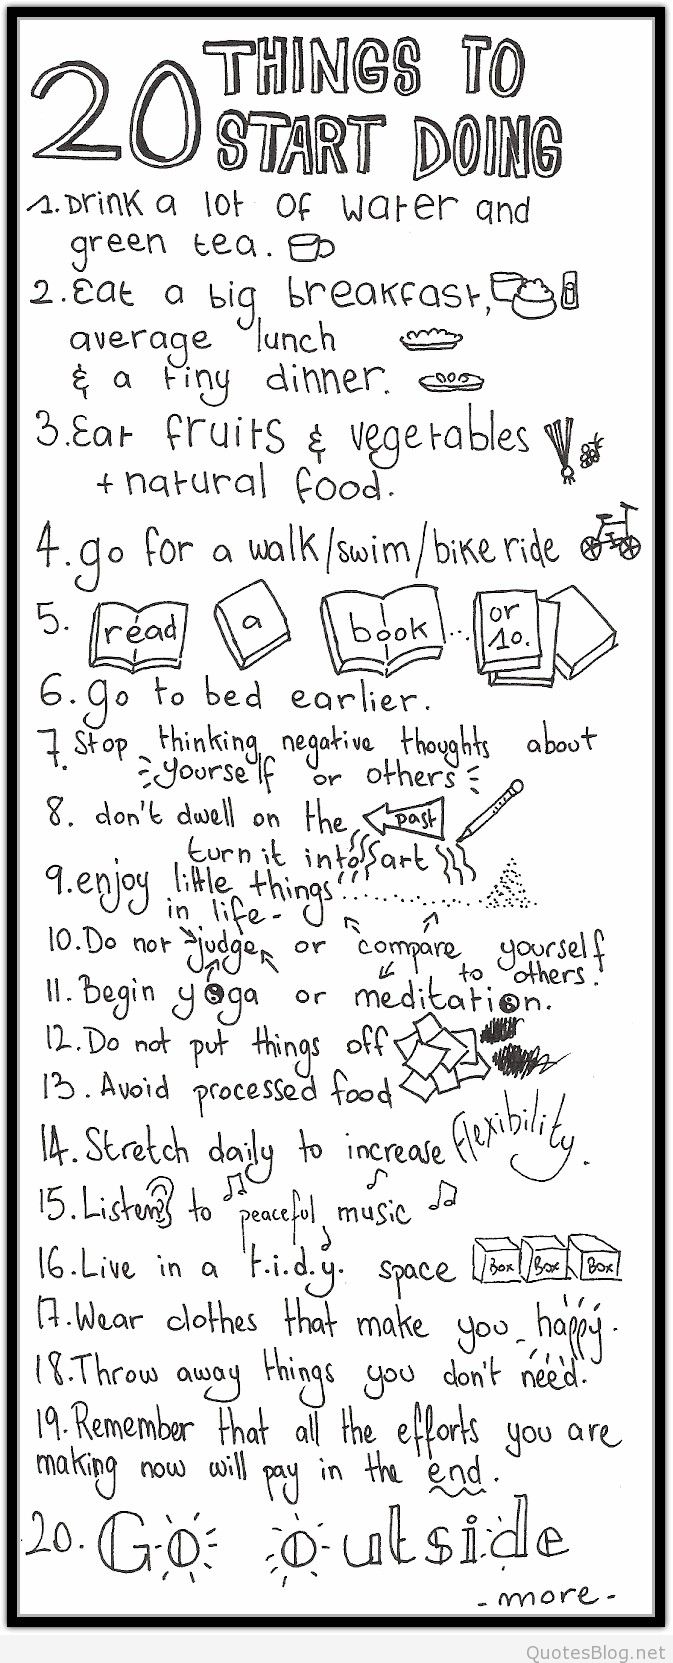 20 THINGS TO
START DOING
1. Drink a lot of water and
green tea.
2. Eat a big breakfast,
average lunch
& a tiny dinner.
3. Eat fruits & vegetables
+ natural food.
4. go for a walk/swim/bike ride
5. read a book... or 10.
6. go to bed earlier.
7. Stop thinking negative thoughts about
yourself or others
8. don't dwell on the past
turn it into art
9. enjoy little things
in life-
10. Do not judge or compare yourself
to others.
11. Begin yoga or meditation.
12. Do not put things off
13. Avoid processed food
14. Stretch daily to increase flexibility.
15. Listen to peaceful music
16. Live in a t.i.d.y. space Box Box Box
17. Wear clothes that make you happy.
18. Throw away things you don't need.
19. Remember that all the efforts you are
making now will pay in the end.
20. Go outside
-more-
QuotesBlog.net